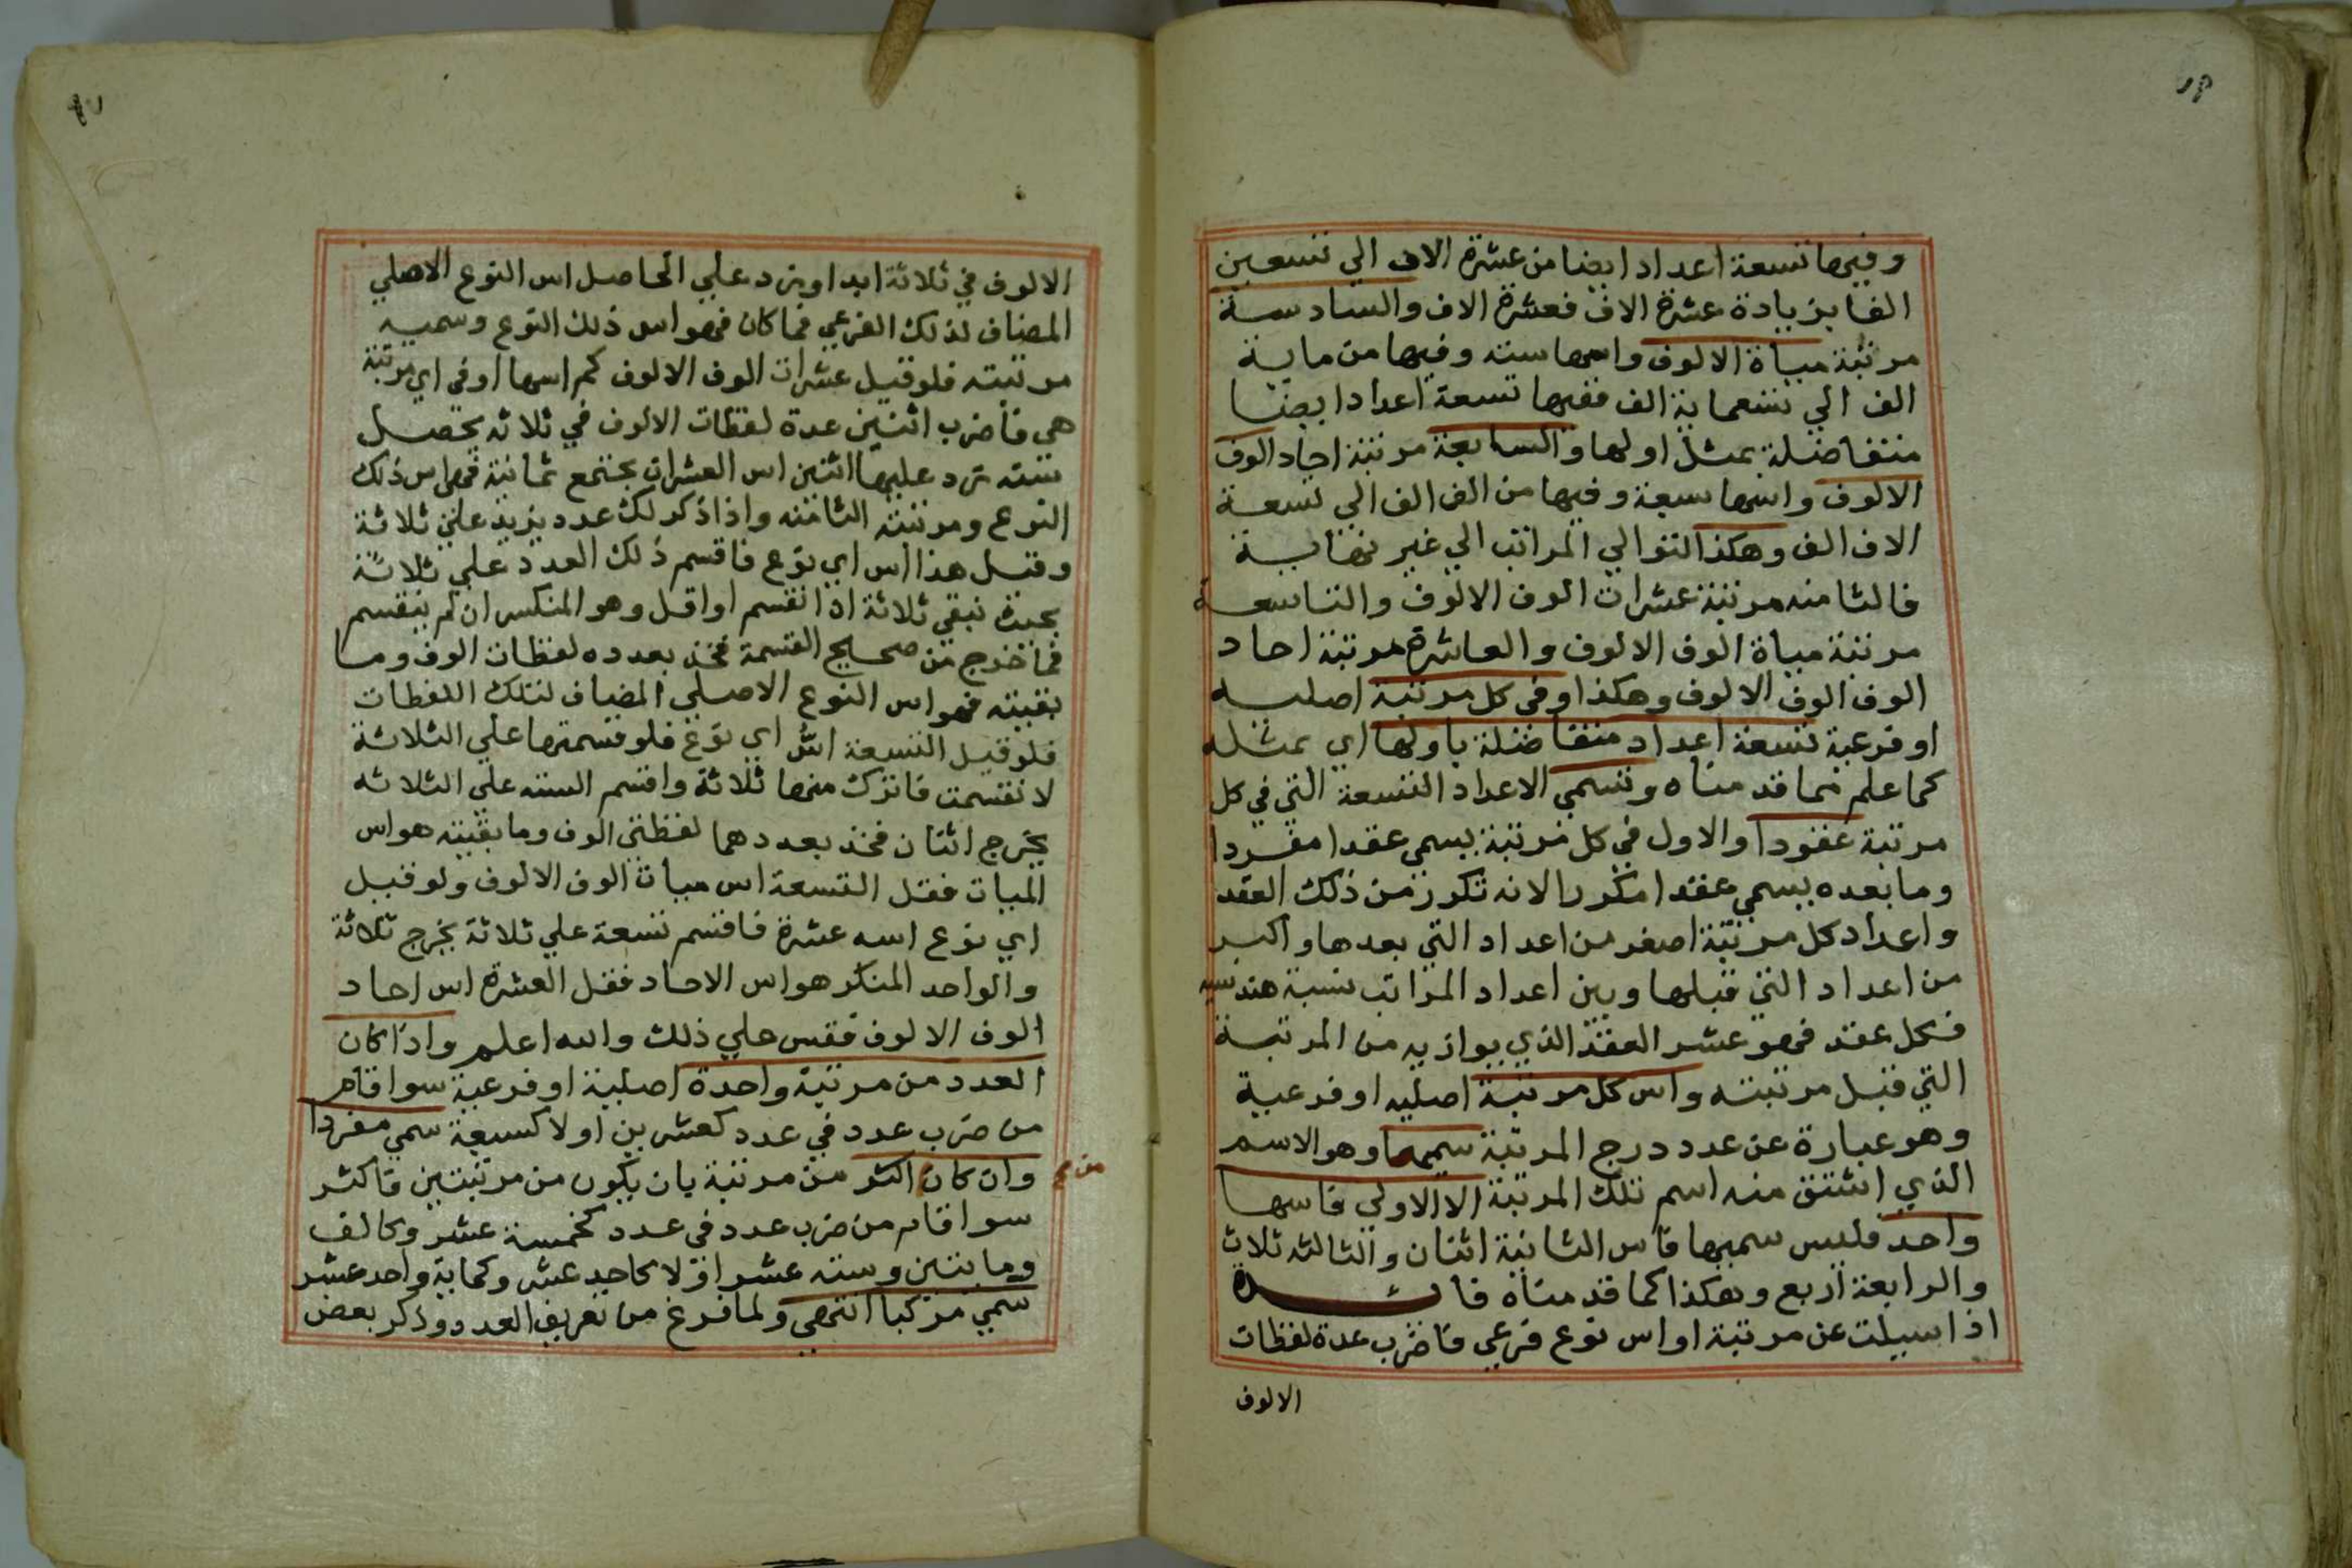 وفيها تسعة اعداد ايضا من عشرة الاف الي تسعين
الفا بزيادة عشرة الاف فعشرة الاف والسادسة
مرتبة مياة الالوف واسها سته وفيها من ماية
الف الي تسعماية الف ففيها تسعة اعداد ايضا
متفاضلة بمثل اولها والسابعة مرتبة احاد الوف
الالوف واسها سبعة وفيها من الف الف الي تسعة
الاف الف وهكذا التوالي المراتب الي غير نهاية
فالثامنه مرتبة عشرات الوف الالوف والتاسعة
مرتبة مياة الوف الالوف والعاشرة مرتبة احاد
الوف الوف الالوف وهكذا وفي كل مرتبة اصليه
او فرعية تسعة اعداد متفاضلة باولها اي بمثله
كما علم مما قدمناه وتسمي الاعداد التسعة التي في كل
مرتبة عقودا والاول في كل مرتبة يسمي عقدا مفردا
وما بعده يسمي عقدا مكررا لانه تكرر من ذلك العقد
واعداد كل مرتبة اصغر من اعداد التي بعدها واكبر
من اعداد التي قبلها وبين اعداد المراتب نسبة هندسيه
فكل عقد فهو عشر العقد الذي يوازيه من المرتبة
التي قبل مرتبته واس كل مرتبة اصليه او فرعية
وهو عبارة عن عدد درج المرتبة سميها وهو الاسم
الذي اشتق منه اسم تلك المرتبة الا الاولي فاسها
واحد فليس سميها فاس الثانية اثنان والثالثه ثلاث
والرابعة اربع وهكذا كما قدمناه فائدة
اذا سيلت عن مرتبة او اس نوع فرعي فاضرب عدة لفظات
الالوف
الالوف في ثلاثة ابدا وزد علي الحاصل اس النوع الاصلي
المضاف لذلك الفرعي فما كان فهو اس ذلك النوع وسميه
مرتبته فلو قيل عشرات الوف الالوف كم اسها او في اي مرتبة
هي فاضرب اثنين عدة لفظات الالوف في ثلاثه يحصل
سته زد عليها اثنين اس العشرات يجتمع ثمانية فهي اس ذلك
النوع ومرتبته الثامنه واذا ذكر لك عدد يزيد علي ثلاثة
وقيل هذا اس اي نوع فاقسم ذلك العدد علي ثلاثة
بحيث تبقي ثلاثة اذا انقسم او اقل وهو المنكسر ان لم ينقسم
فما خرج من صحيح القسمة فخذ بعدده لفظات الوف وما
بقيته فهو اس النوع الاصلي المضاف لتلك اللفظات
فلو قيل التسعة اس اي نوع فلو قسمتها علي الثلاثة
لانقسمت فاترك منها ثلاثة واقسم السته علي الثلاثه
يخرج اثنان فخذ بعددهما لفظتي الوف وما بقيته هو اس
الميات فقل التسعة اس ميات الوف الالوف ولو قيل
اي نوع اسه عشرة فاقسم تسعة علي ثلاثة يخرج ثلاثة
والواحد المنكر هو اس الاحاد فقل العشرة اس احاد
الوف الالوف فقس علي ذلك والله اعلم واذا كان
العدد من مرتبة واحدة اصلية او فرعية سوا قام
من ضرب عدد في عدد كعشرين او لا كسبعة سمي مفردا
وان كان اكثر من مرتبة بان يكون من مرتبتين فاكثر
سوا قام من ضرب عدد في عدد كخمسة عشر وكالف
ومايتين وسته عشر او لا كاحد عشر وكماية واحد عشر
سمي مركبا انتهي ولما فرغ من تعريف العدد وذكر بعض